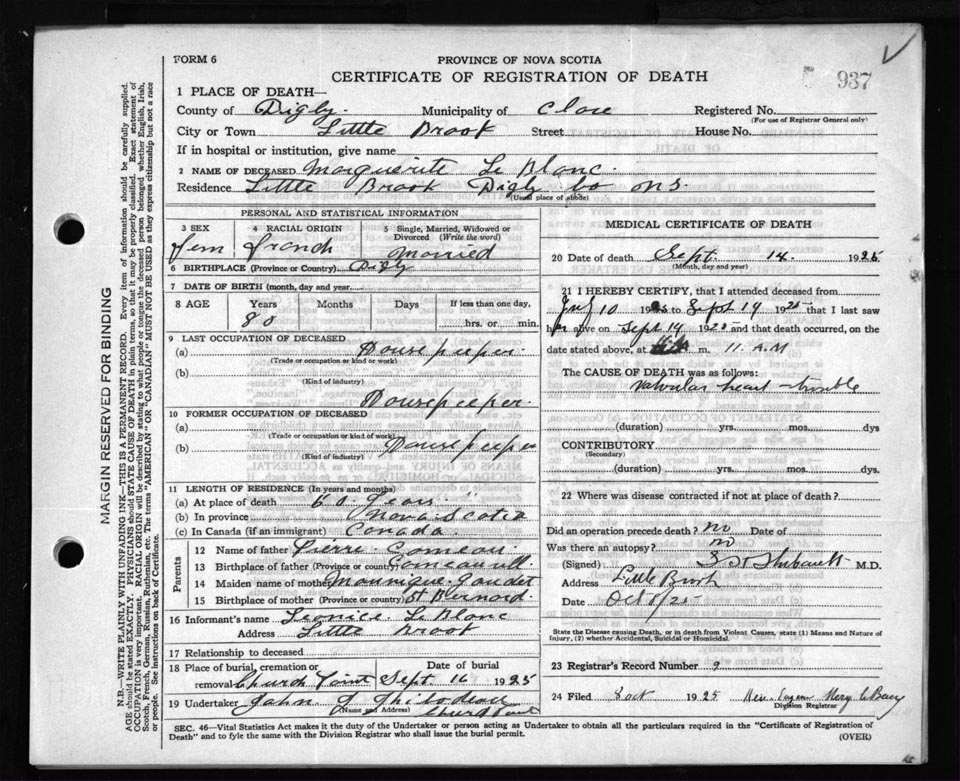 FORM 6
PROVINCE OF NOVA SCOTIA
CERTIFICATE OF REGISTRATION OF DEATH
937
1 PLACE OF DEATH—
County of Digby Municipality of Clare Registered No.
(For use of Registrar General only)
City or Town Little Brook Street House No.
If in hospital or institution, give name
2 NAME OF DECEASED Marguerite Le Blanc
Residence Little Brook Digby Co N S.
(Usual place of abode)
PERSONAL AND STATISTICAL INFORMATION
3 SEX 4 RACIAL ORIGIN 5 Single, Married, Widowed or Divorced (Write the word)
Fem French Married
6 BIRTHPLACE (Province or Country) Digby
7 DATE OF BIRTH (month, day and year
8 AGE Years Months Days If less than one day,
80 hrs. or min.
9 LAST OCCUPATION OF DECEASED
(a) Housekeeper
(Trade or occupation or kind or work)
(b)
(Kind of industry)
Housekeeper
10 FORMER OCCUPATION OF DECEASED
(a)
(Trade or occupation or kind of work)
(b) Housekeeper
(Kind of industry)
11 LENGTH OF RESIDENCE (In years and months)
(a) At place of death 60 years
(b) In province Nova Scotia
(c) In Canada (if an immigrant) Canada
Parents
12 Name of father Pierre Comeau
13 Birthplace of father (Province or country) Comeauvill
14 Maiden name of mother Monnique Gaudet
15 Birthplace of mother (Province or country) St Bernard
16 Informant's name Leonice Le Blanc
Address Little Brook
17 Relationship to deceased
18 Place of burial, cremation or removal Church Point Date of burial Sept 16 1925
19 Undertaker John J Thibodeau Church Point
(Name and Address)
MEDICAL CERTIFICATE OF DEATH
20 Date of death Sept. 14. 1925
(Month, day and year)
21 I HEREBY CERTIFY, that I attended deceased from
July 10 1925 to Sept 14 1925 that I last saw
her alive on Sept 14 1925 and that death occurred, on the
date stated above, at m. 11 A.M
The CAUSE OF DEATH was as follows:
Valvular heart trouble
(duration) yrs. mos. dys
CONTRIBUTORY
(Secondary)
(duration) yrs. mos. dys.
22 Where was disease contracted if not at place of death?
Did an operation precede death? no Date of
Was there an autopsy? no
(Signed) Thibault M.D.
Address Little Brook
Date Oct 8/25
State the Disease causing Death, or in death from Violent Causes, state (1) Means and Nature of
Injury, (2) whether Accidental, Suicidal or Homicidal.
23 Registrar's Record Number 9
24 Filed 8 Oct 1925
Division Registrar
SEC. 46—Vital Statistics Act makes it the duty of the Undertaker or person acting as Undertaker to obtain all the particulars required in the "Certificate of Registration of
Death" and to fyle the same with the Division Registrar who shall issue the burial permit.
(OVER)
MARGIN RESERVED FOR BINDING
N.B.—WRITE PLAINLY WITH UNFADING INK—THIS IS A PERMANENT RECORD. Every item of information should be carefully supplied.
AGE should be stated EXACTLY. PHYSICIANS should STATE CAUSE OF DEATH in plain terms, so that it may be properly classified. Exact statement of
OCCUPATION is very important. RACIAL ORIGIN will be described by stating to what people or tongue the deceased person belonged whether English, Irish,
Scotch, French, German, Russian, Ruthenian, etc. The terms "AMERICAN" OR "CANADIAN" MUST NOT BE USED as they express citizenship but not a race
or people. See instructions on back of Certificate.